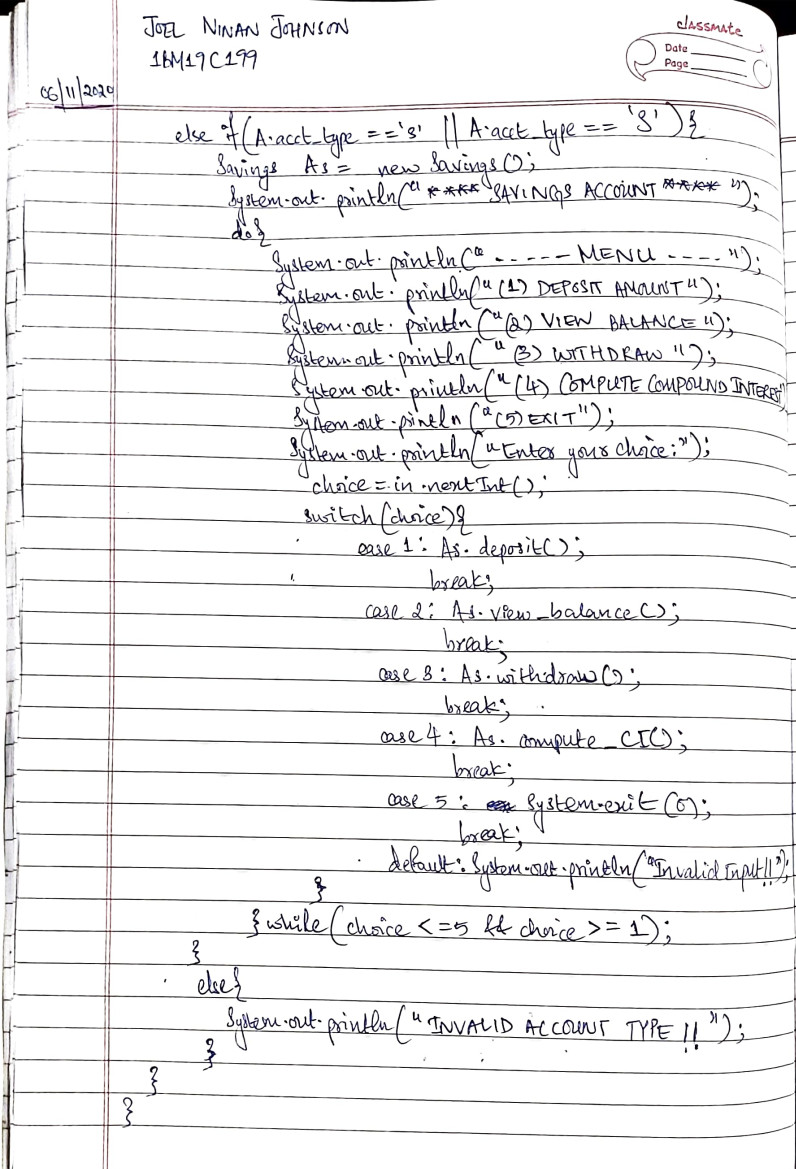 JOEL NINAN JOHNSON
classmate
1BM19C199
Date
Page
06/11/2020
else if (A.acct_type == 's' || A.acct_type == 'S') {
Savings As = new Savings();
System.out.println("**** SAVINGS ACCOUNT **** ");
do{
System.out.println("-----MENU----");
System.out.println("(1) DEPOSIT AMOUNT");
System.out.println("(2) VIEW BALANCE");
System.out.println("(3) WITHDRAW");
System.out.println("(4) COMPUTE COMPOUND INTEREST")
System.out.println("(5) EXIT");
System.out.println("Enter your choice:");
choice = in.nextInt();
switch (choice) {
case 1: As.deposit();
break;
case 2: As.view_balance();
break;
case 3: As.withdraw();
break;
case 4: As.compute_CI();
break;
case 5: System.exit(0);
break;
default: System.out.println("Invalid Input!!");
}
} while (choice <=5 && choice >= 1);
}
else{
System.out.println("INVALID ACCOUNT TYPE !!");
}
}
}